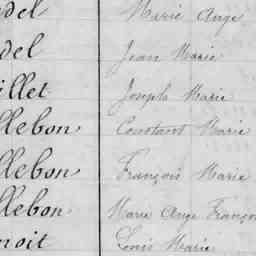 del Marie Ange
del Jean Marie
illet Joseph Marie
llebon Constant Marie
llebon François Marie
llebon Marie Ange Franço
noit Louis Marie